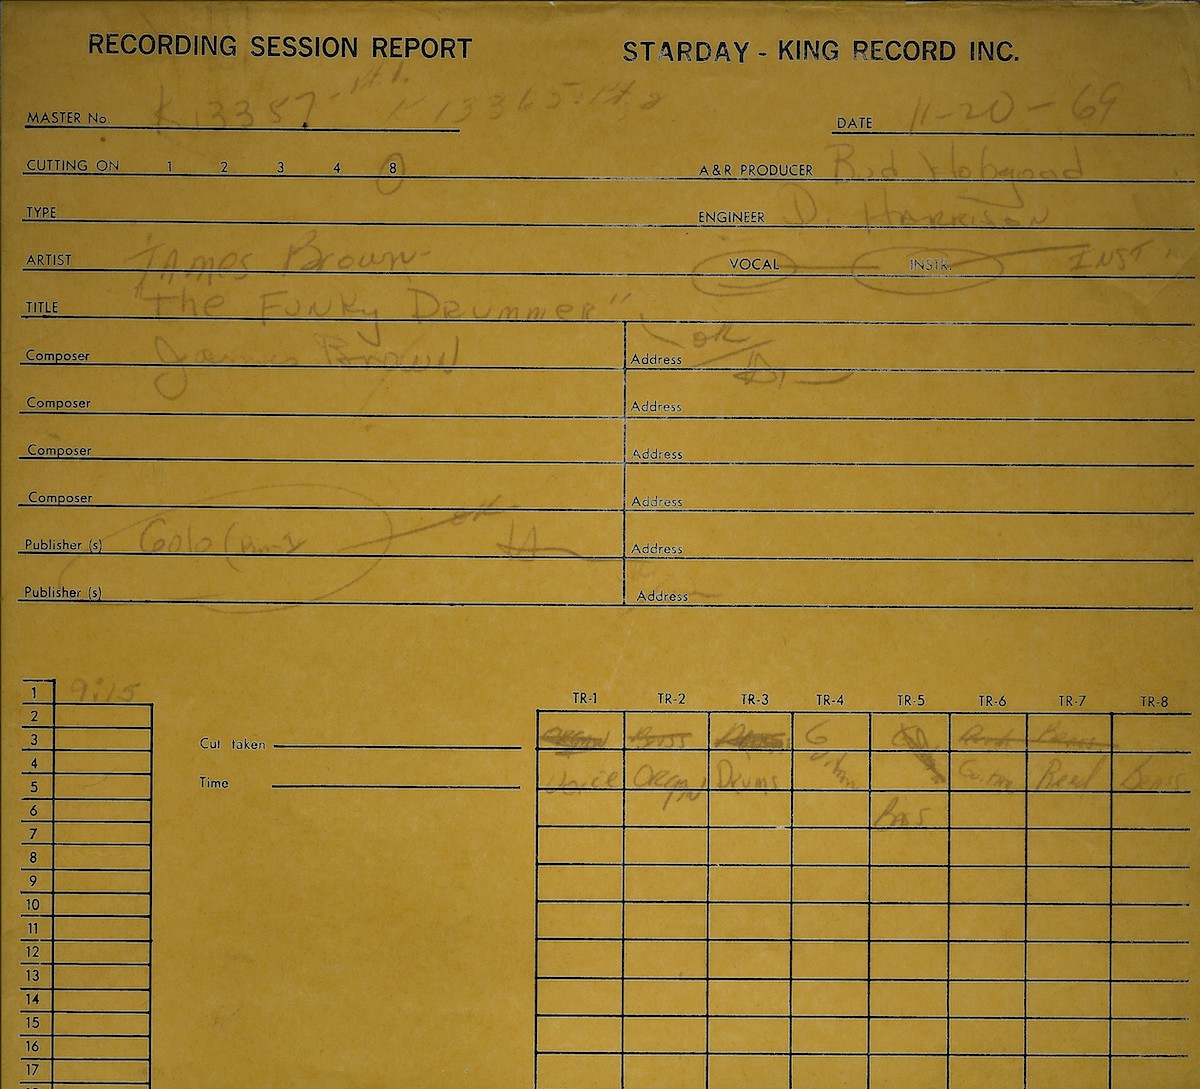 RECORDING SESSION REPORT STARDAY - KING RECORD INC.
MASTER No. K 13357 - Pt. 1. K 13365 Pt. 2
DATE 11-20-69
CUTTING ON 1 2 3 4 8
A & R PRODUCER Bud Hobgood
TYPE
ENGINEER D. HARRISON
ARTIST JAMES Brown
VOCAL INSTR. INST
TITLE "The FUNKY DRUMMER"
Composer James Brown
Address OK
Composer Address
Composer Address
Composer Address
Publisher (s) Golo (BMI OK
Address
Publisher (s) Address
1 9:15
TR-1 TR-2 TR-3 TR-4 TR-5 TR-6 TR-7 TR-8
2
3 Cut taken ORGAN BASS DRUMS Guitar Brass
4
5 Time Voice ORGAN Drums Guitar Reed Brass
6 BASS
7
8
9
10
11
12
13
14
15
16
17